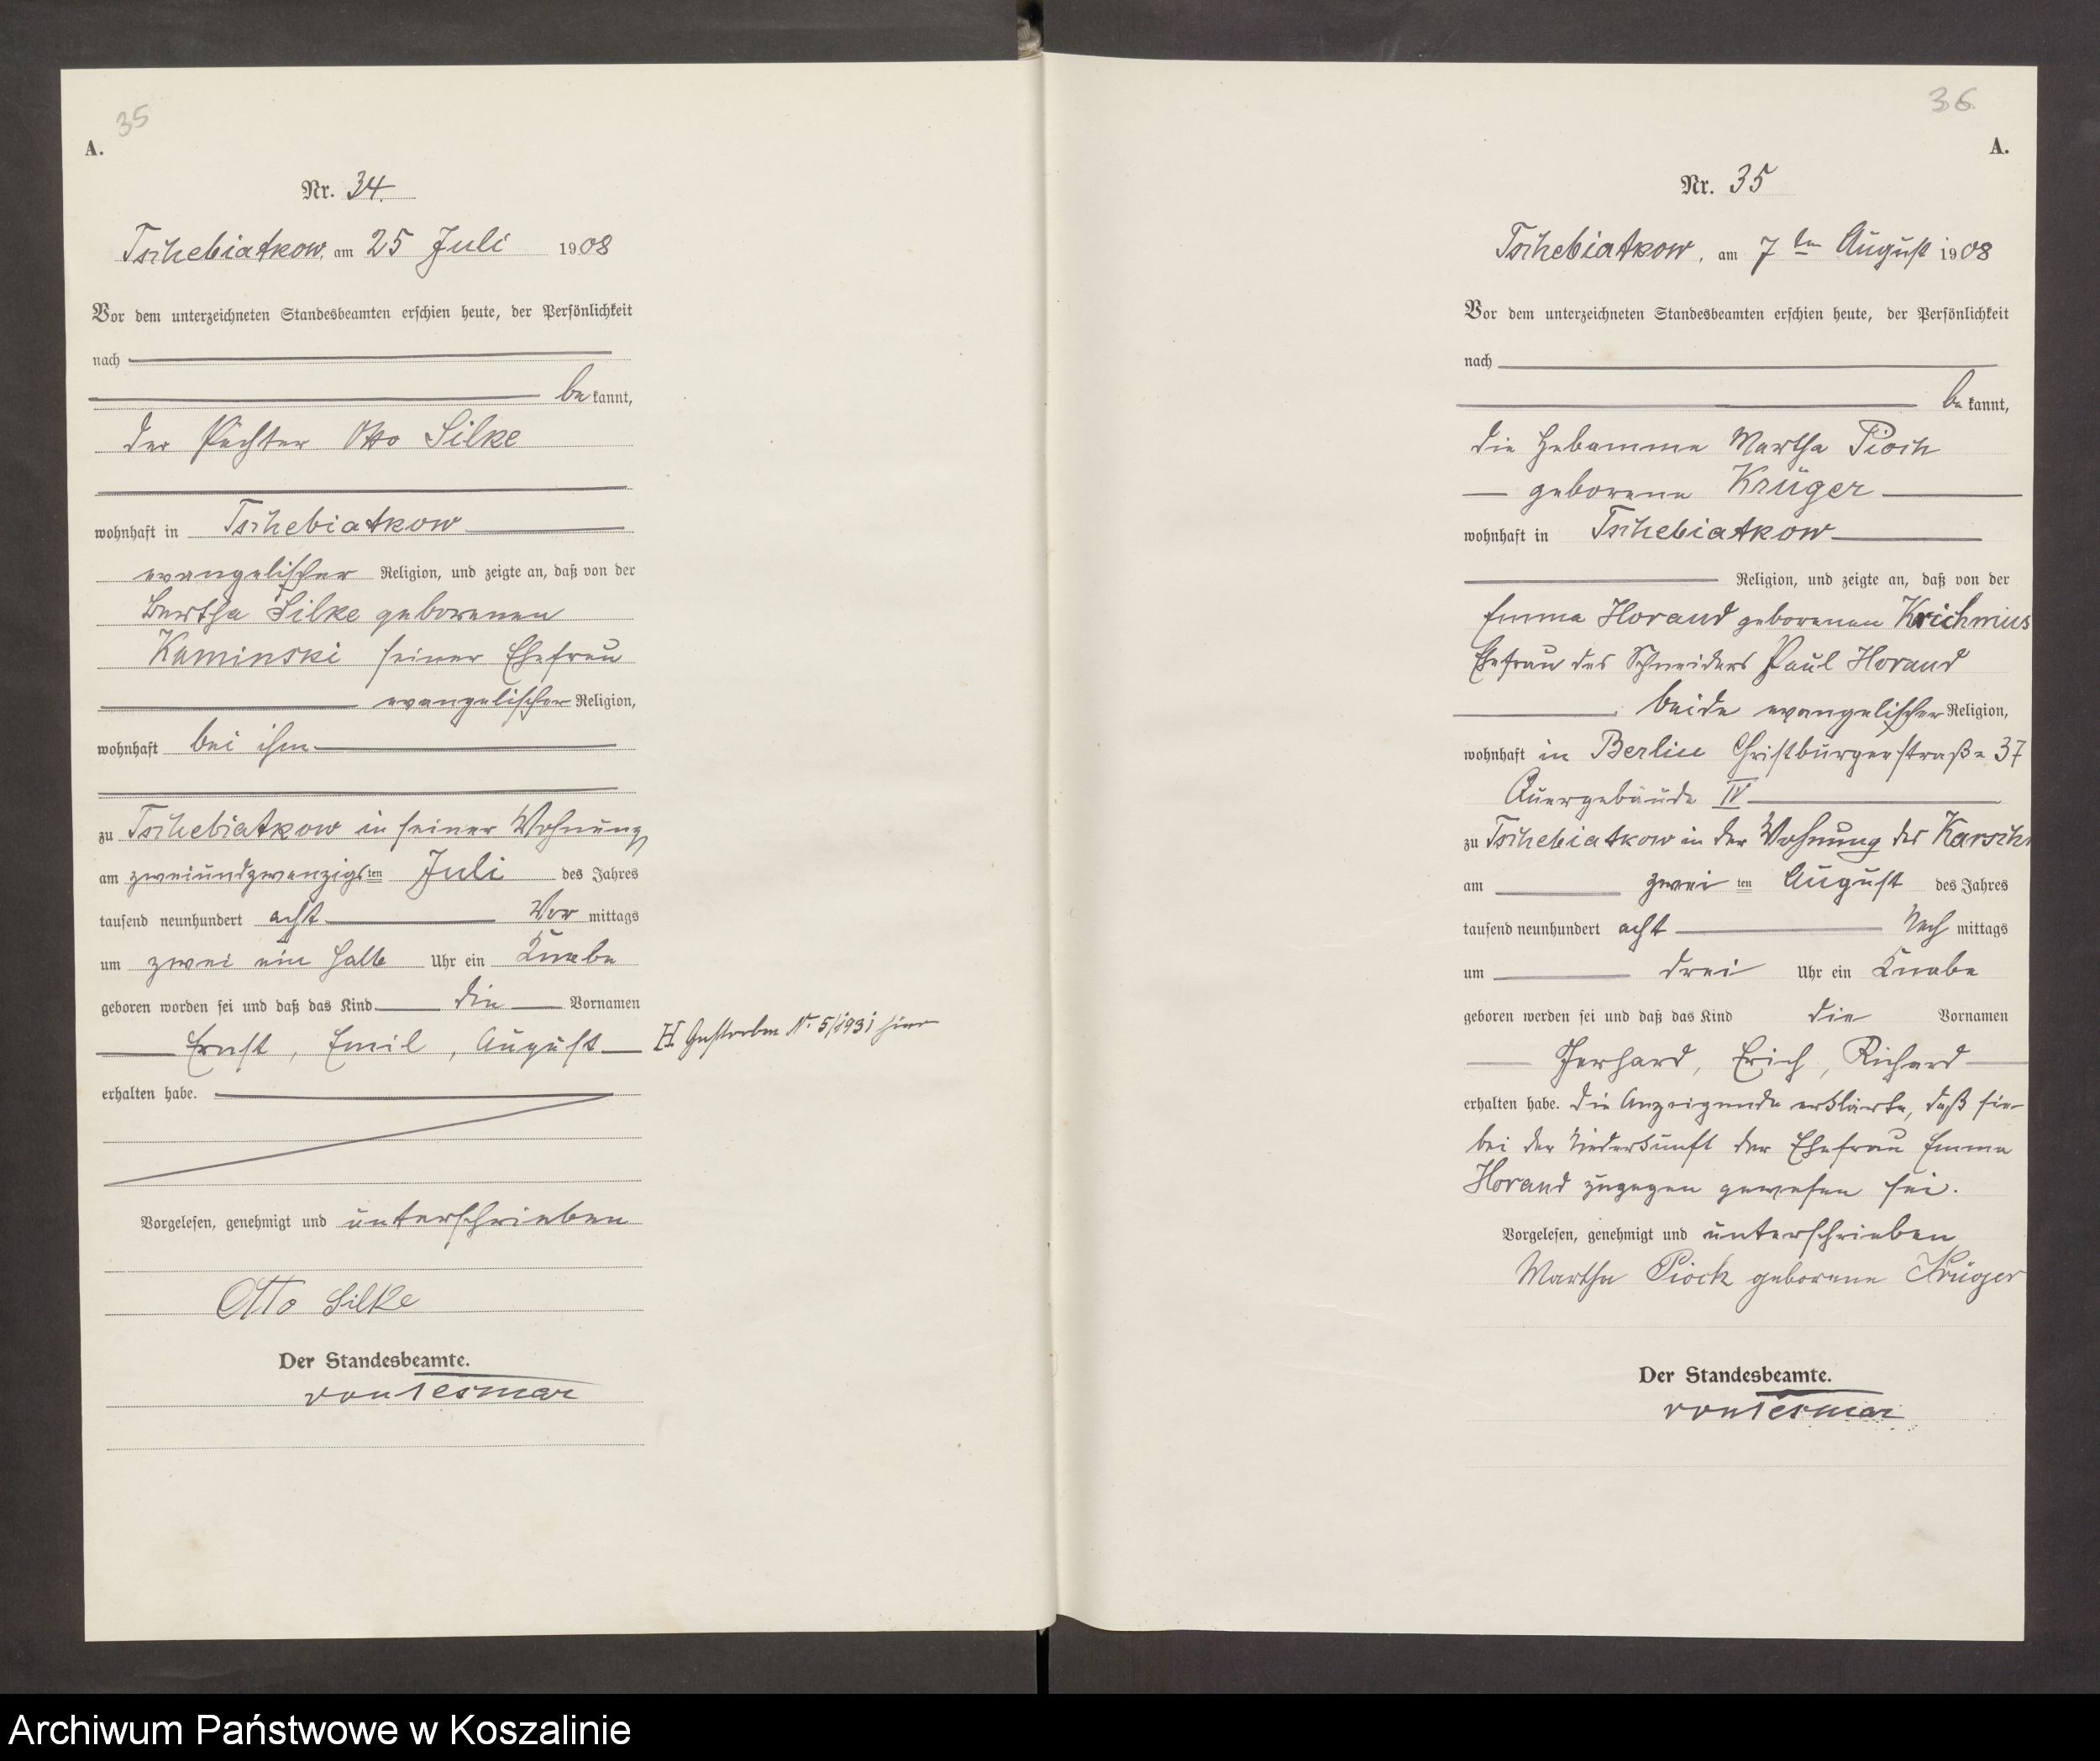 35
A.
Nr. 34.
Tschebiatkow, am 25 Juli 1908
Vor dem unterzeichneten Standesbeamten erschien heute, der Persönlichkeit
nach
be kannt,
der Pächter Otto Silke
wohnhaft in Tschebiatkow
evangelischer Religion, und zeigte an, daß von der
Bertha Silke geborenen
Kaminski seiner Ehefrau
evangelischer Religion,
wohnhaft bei ihm
zu Tschebiatkow in seiner Wohnung
am zweiundzwanzigsten Juli des Jahres
tausend neunhundert acht Vor mittags
um zwei ein halb Uhr ein Knabe
geboren worden sei und daß das Kind die Vornamen
Ernst, Emil, August
H. Gestorben Nr. 5/1931 hier
erhalten habe.
Vorgelesen, genehmigt und unterschrieben
Otto Silke
Der Standesbeamte.
von Tesmar
36
A.
Nr. 35
Tschebiatkow, am 7ten August 1908
Vor dem unterzeichneten Standesbeamten erschien heute, der Persönlichkeit
nach
be kannt,
die Hebamme Martha Pioch
geborene Krüger
wohnhaft in Tschebiatkow
Religion, und zeigte an, daß von der
Emma Horand geborenen
Ehefrau des Schneiders Paul Horand
beide evangelischer Religion,
wohnhaft in Berlin Christburgerstraße 37
Quergebäude IV
zu Tschebiatkow in der Wohnung des
am zwei ten August des Jahres
tausend neunhundert acht Nach mittags
um drei Uhr ein Knabe
geboren worden sei und daß das Kind die Vornamen
Gerhard, Erich, Richard
erhalten habe. Die Anzeigende erklärte, daß sie
bei der Niederkunft der Ehefrau Emma
Horand zugegen gewesen sei.
Vorgelesen, genehmigt und unterschrieben
Martha Piock geborene Krüger
Der Standesbeamte.
von Tesmar
Archiwum Państwowe w Koszalinie